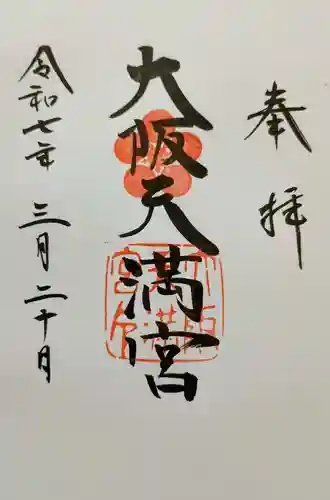 奉拝
大阪天満宮
令和七年 三月二十日